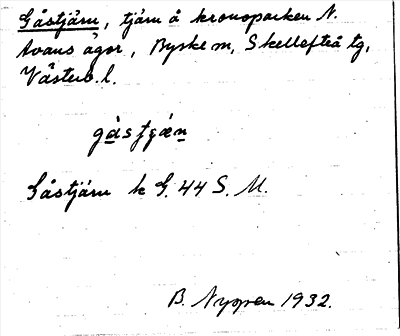 Gåstjärn, tjärn å kronoparken N.
Avans ägor, Byske sn, Skellefteå tg,
Västerb. l.
Gåstjärn k G. 44 S. U.
B. Nyman 1932.